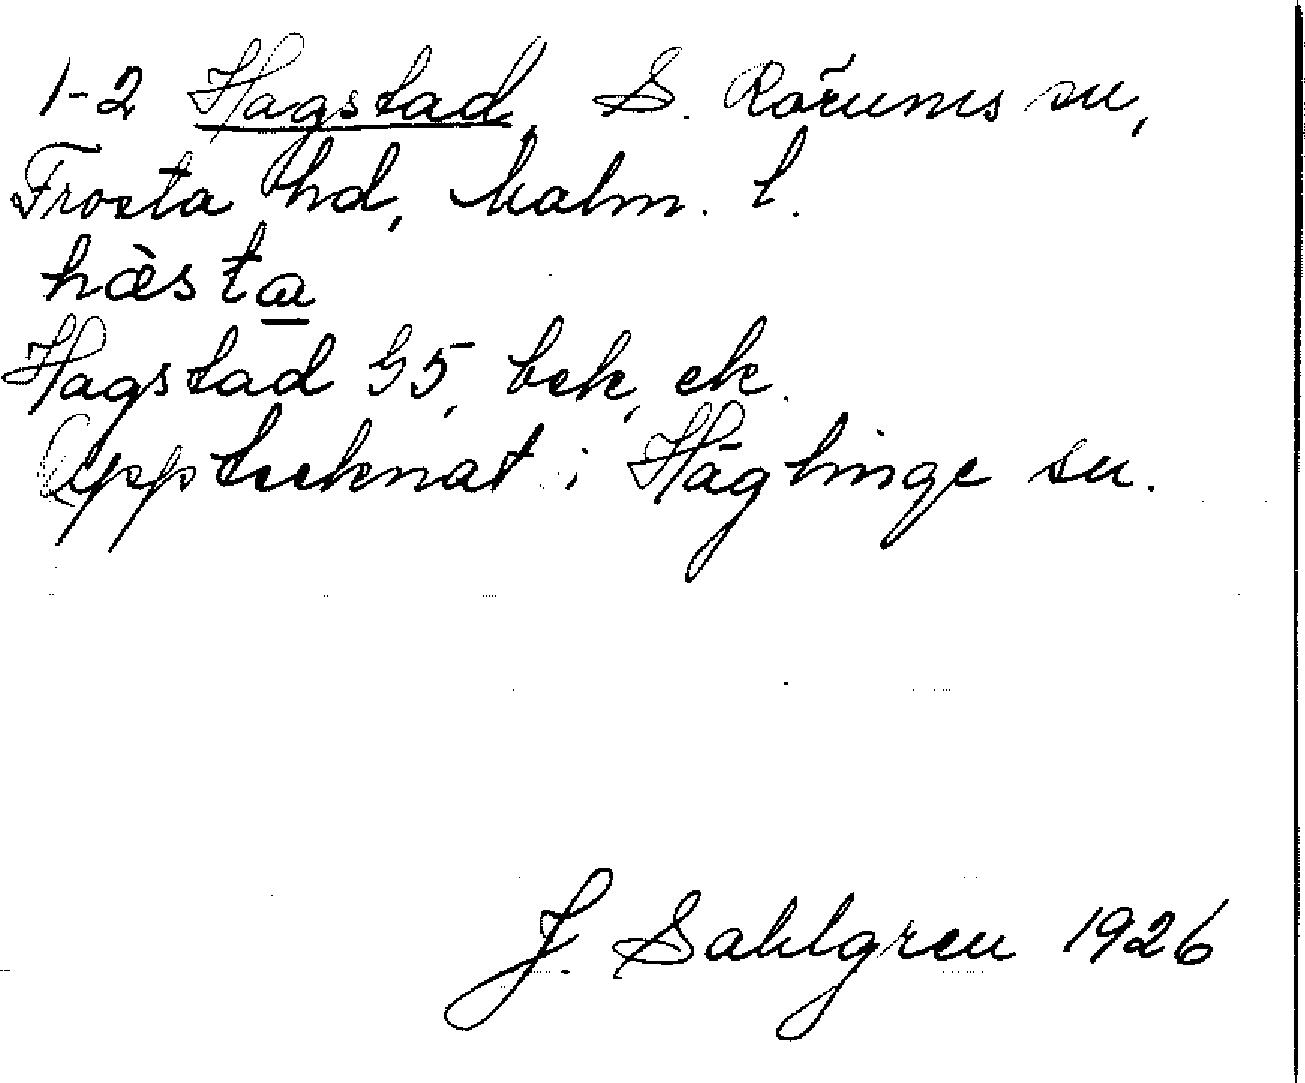 1-2 Hagstad, S. Rörums sn,
Frosta hd, Malm. l.
hàsta
Hagstad G5, bek, ek.
Upptecknat i Häglinge sn.
J. Sahlgren 1926